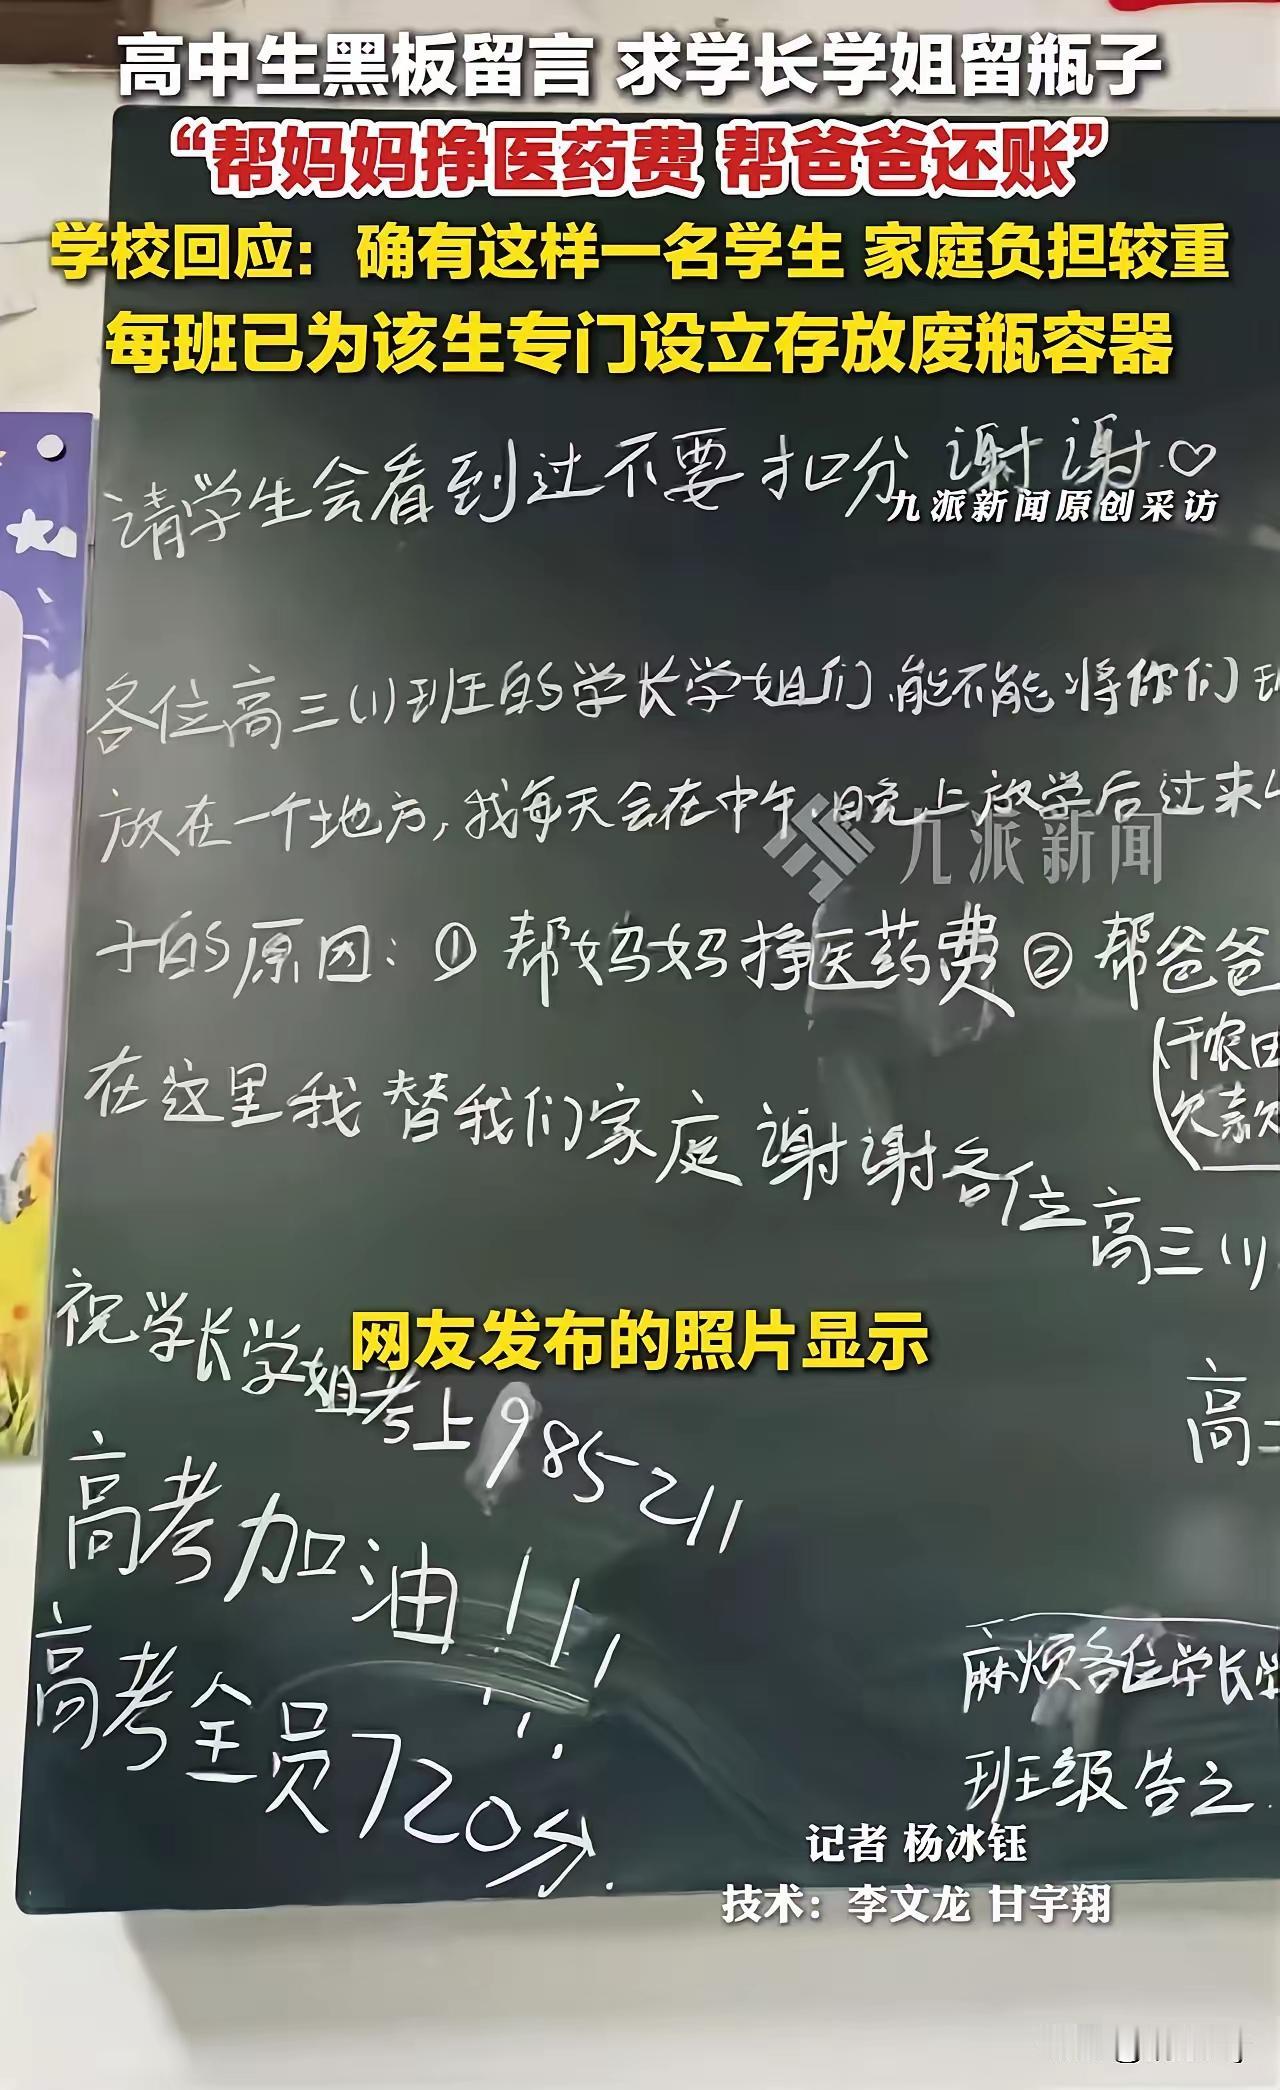 高中生黑板留言 求学长学姐留瓶子
“帮妈妈挣医药费 帮爸爸还账”
学校回应：确有这样一名学生 家庭负担较重
每班已为该生专门设立存放废瓶容器
请学生会看到过不要扣分 谢谢♡
九派新闻原创采访
各位高三(1)班的学长学姐们,能不能将你们班
放在一个地方,我每天会在中午.晚上放学后过来
九派新闻
子的原因:①帮妈妈挣医药费②帮爸爸
(干农田
欠款欠
在这里我替我们家庭谢谢各位高三(1)
祝学长学姐考上985 211
网友发布的照片显示
高二
高考加油!!!
高考全员720分.
麻烦各位学长学
班级告之.
记者 杨冰钰
技术：李文龙 甘宇翔